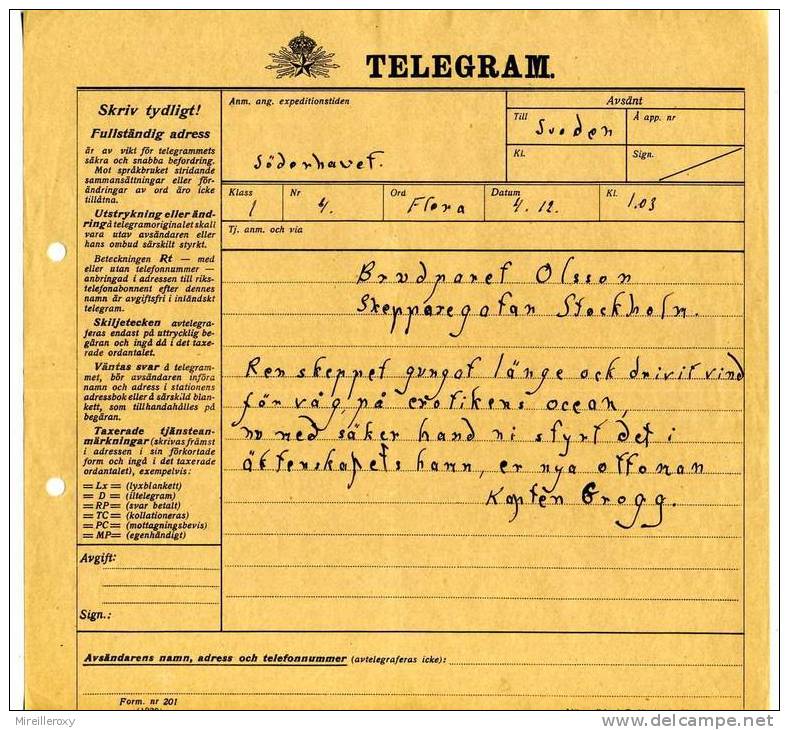 TELEGRAM.
Skriv tydligt!
Fullständig adress
är av vikt för telegrammets
säkra och snabba befordring.
Mot språkbruket stridande
sammansättningar eller för-
ändringar av ord äro icke
tillåtna.
Utstrykning eller änd-
ring å telegramoriginalet skall
vara utav avsändaren eller
hans ombud särskilt styrkt.
Beteckningen Rt — med
eller utan telefonnummer —
anbringad i adressen till riks-
telefonabonnent efter dennes
namn är avgiftsfri i inländskt
telegram.
Skiljetecken avtelegra-
feras endast på uttrycklig be-
gäran och ingå då i det taxe-
rade ordantalet.
Väntas svar å telegram-
met, bör avsändaren införa
namn och adress i stationens
adressbok eller å särskild blan-
kett, som tillhandahålles på
begäran.
Taxerade tjänstean-
märkningar (skrivas främst
i adressen i sin förkortade
form och ingå i det taxerade
ordantalet), exempelvis:
=Lx= (lyxblankett)
=D= (iltelegram)
=RP= (svar betalt)
=TC= (kollationeras)
=PC= (mottagningsbevis)
=MP= (egenhändigt)
Avgift:
Sign.:
Anm. ang. expeditionstiden
Söderhavet.
Avsänt
Till
Sveden
Å app. nr
Kl.
Sign.
Klass
1
Nr
4.
Ord
Flera
Datum
4.12.
Kl.
1.03
Tj. anm. och via
Brudparet Olsson
Skepparegatan Stockholm.
Ren skeppet gungat länge ock drivit vind
för våg, på erotikens ocean,
nu med säker hand ni styrt det i
äktenskapets hamn, er nya ottoman
Kapten Grogg.
Avsändarens namn, adress och telefonnummer (avtelegraferas icke):
Form. nr 201
Mireilleroxy
www.delcampe.net